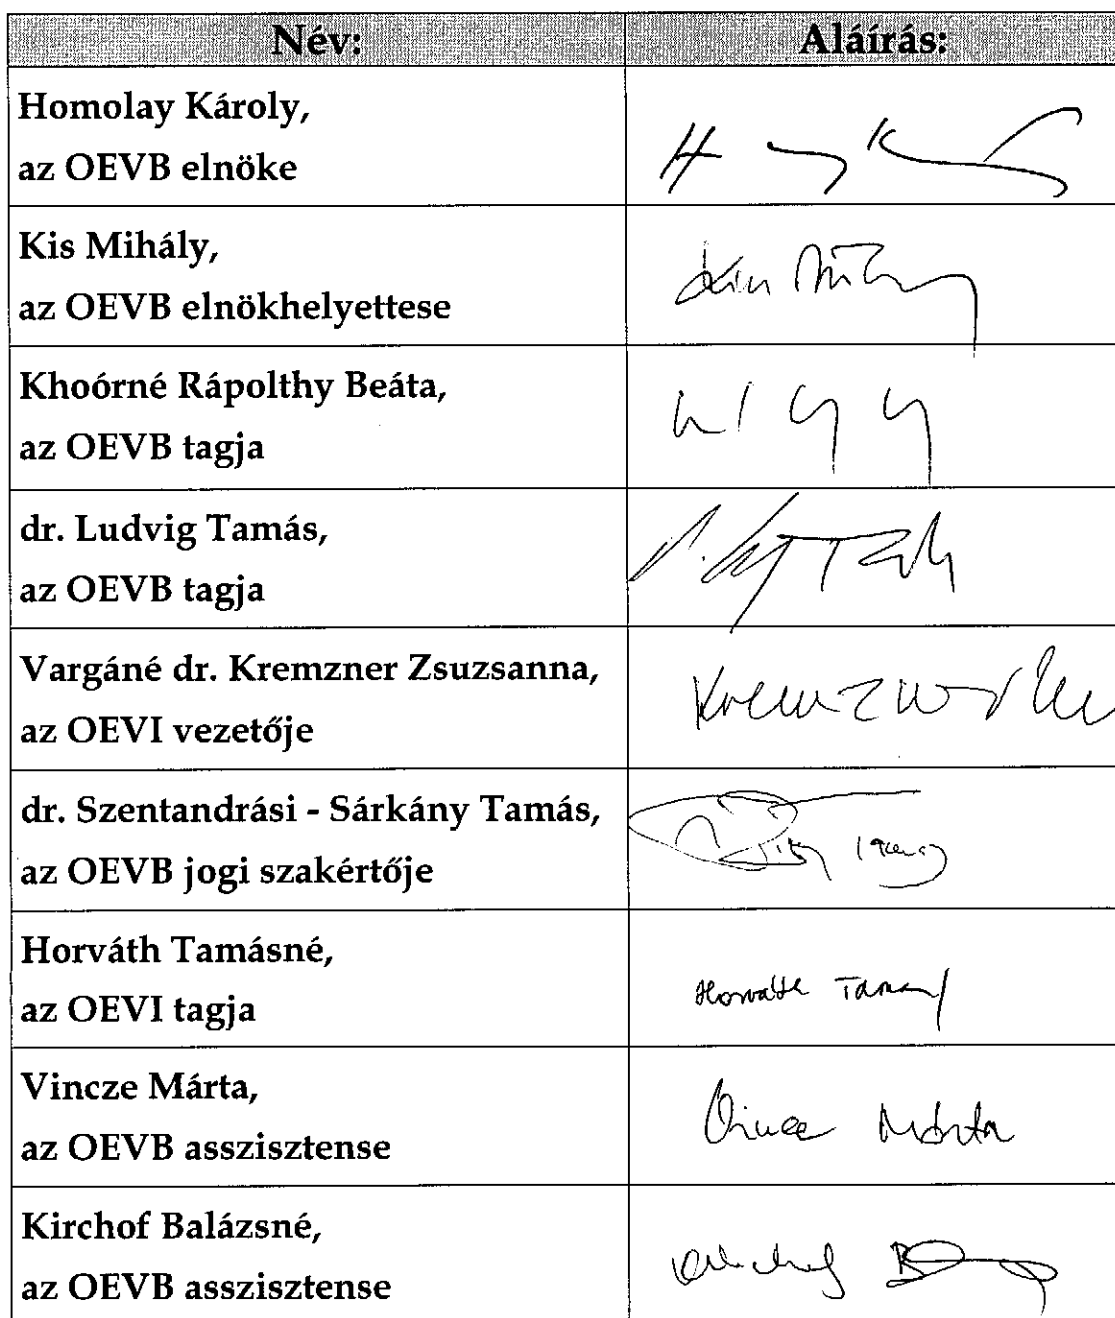 Név: Aláírás:
Homolay Károly,
az OEVB elnöke
Kis Mihály,
az OEVB elnökhelyettese
Khoórné Rápolthy Beáta,
az OEVB tagja
dr. Ludvig Tamás,
az OEVB tagja
Vargáné dr. Kremzner Zsuzsanna,
az OEVI vezetője
dr. Szentandrási - Sárkány Tamás,
az OEVB jogi szakértője
Horváth Tamásné,
az OEVI tagja
Vincze Márta,
az OEVB asszisztense
Vincze Márta
Kirchof Balázsné,
az OEVB asszisztense